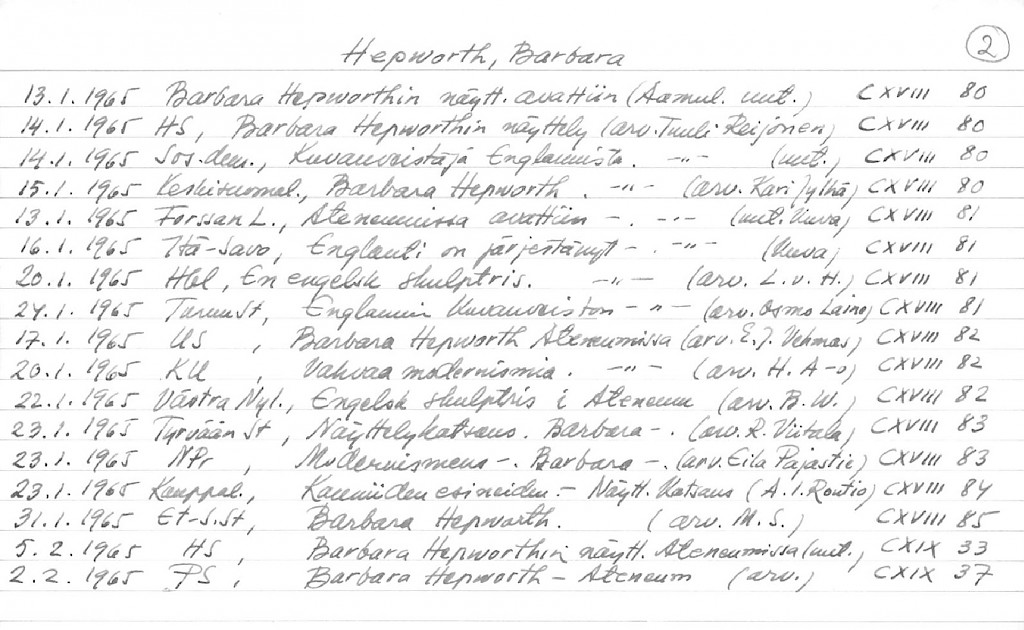 2
Hepworth, Barbara
13.1.1965 Barbara Hepworthin näytt. avattiin (Aamul. uut.) CXVIII 80
14.1.1965 HS, Barbara Hepworthin näyttely (arv. Tuuli Reijonen) CXVIII 80
14.1.1965 Sos.dem., Kuvanveistäjä Englannista. -"- (uut.) CXVIII 80
15.1.1965 Keskisuomal., Barbara Hepworth. -"- (arv. Kari Jylhä) CXVIII 80
13.1.1965 Forssan L., Ateneumissa avattiin -. -"- (uut. kuva) CXVIII 81
16.1.1965 Itä-Savo, Englanti on järjestänyt -. -"- (kuva) CXVIII 81
20.1.1965 Hbl, En engelsk skulptris. -"- (arv. L.v.H.) CXVIII 81
24.1.1965 Turun St, Englannin kuvanveiston -"- (arv. Osmo Laine) CXVIII 81
17.1.1965 US, Barbara Hepworth Ateneumissa (arv. E.J. Vehmas) CXVIII 82
20.1.1965 KU, Vahvaa modernismia. -"- (arv. H. A-o) CXVIII 82
22.1.1965 Västra Nyl., Engelsk skulptris i Ateneum (arv. B.W.) CXVIII 82
23.1.1965 Tyrvään St, Näyttelykatsaus. Barbara -. (arv. R. Viitala) CXVIII 83
23.1.1965 NPr, Modernismens -. Barbara -. (arv. Eila Pajastie) CXVIII 83
23.1.1965 Kauppal., Kauniiden esineiden - Näytt. katsaus (A.I. Routio) CXVIII 84
31.1.1965 Et-S.St, Barbara Hepworth. (arv. M.S.) CXVIII 85
5.2.1965 HS, Barbara Hepworthin näytt. Ateneumissa (uut.) CXIX 33
2.2.1965 PS, Barbara Hepworth - Ateneum (arv.) CXIX 37